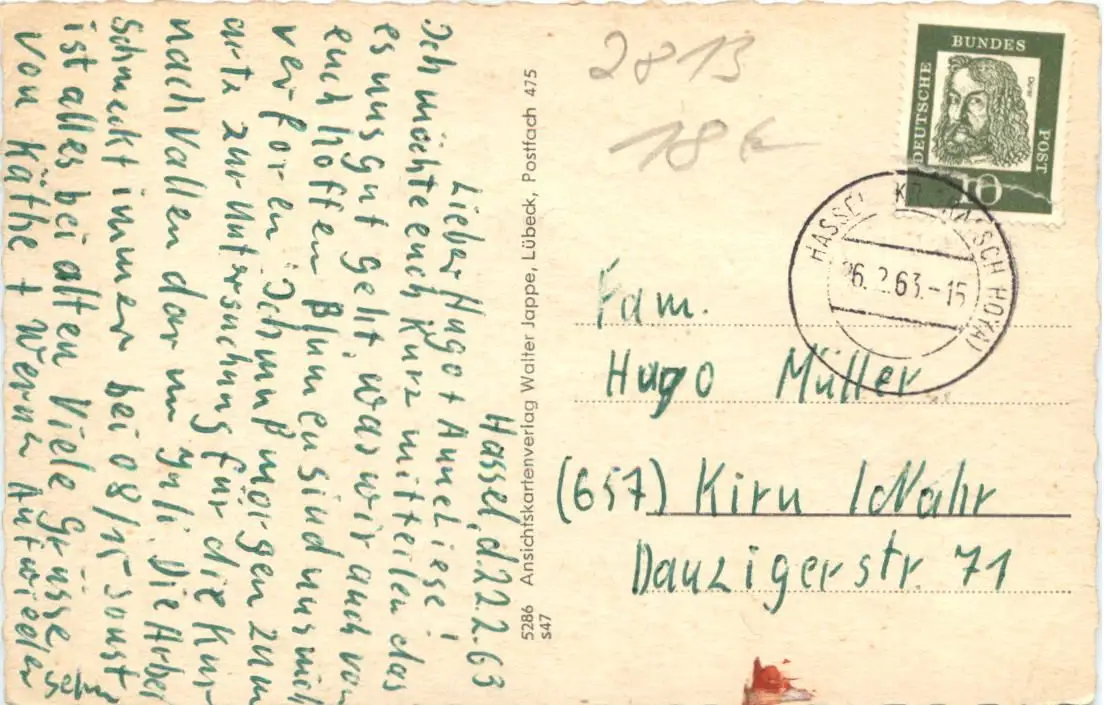 Hassel, d.22.2.63
Lieber Hugo + Anneliese!
Ich möchte euch Kurz mitteilen das
es uns gut Geht was wir auch von
euch hoffen Blumen sind uns nich
verforen Ich muß morgen zum
artz zur Untersuchung für die Kur
nach Vallendar im Juli. Die Arbei
Schmeckt immer bei 08/15 sonst
ist alles bei alten Viele Grüsse
von Käthe + Werner Aufwieder
sehn
5286 Ansichtskartenverlag Walter Jappe, Lübeck, Postfach 475
s47
2813
18 €
DEUTSCHE BUNDES POST
Dürer
10
HASSEL HOYA)
26.2.63.-15
Fam.
Hugo Müller
(657) Kirn /Nahr
Danzigerstr. 71